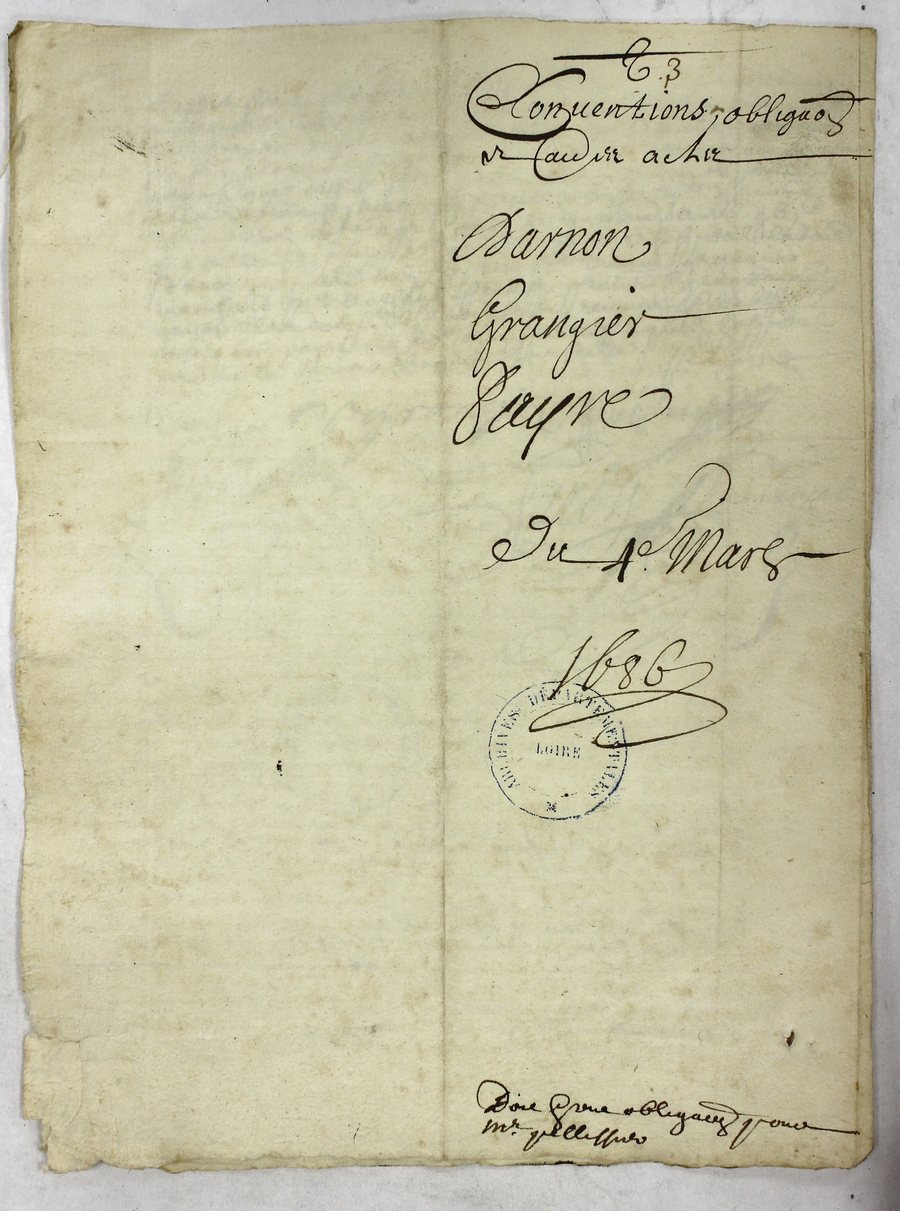 T. 3
Conuentions, obligaõ
et autre acte
Darnon
Grangier
Payre
Du 4e. Mars
1686
ARCHIVES DÉPARTEMENTALES
LOIRE
obligaõ pour
mr. pellissier